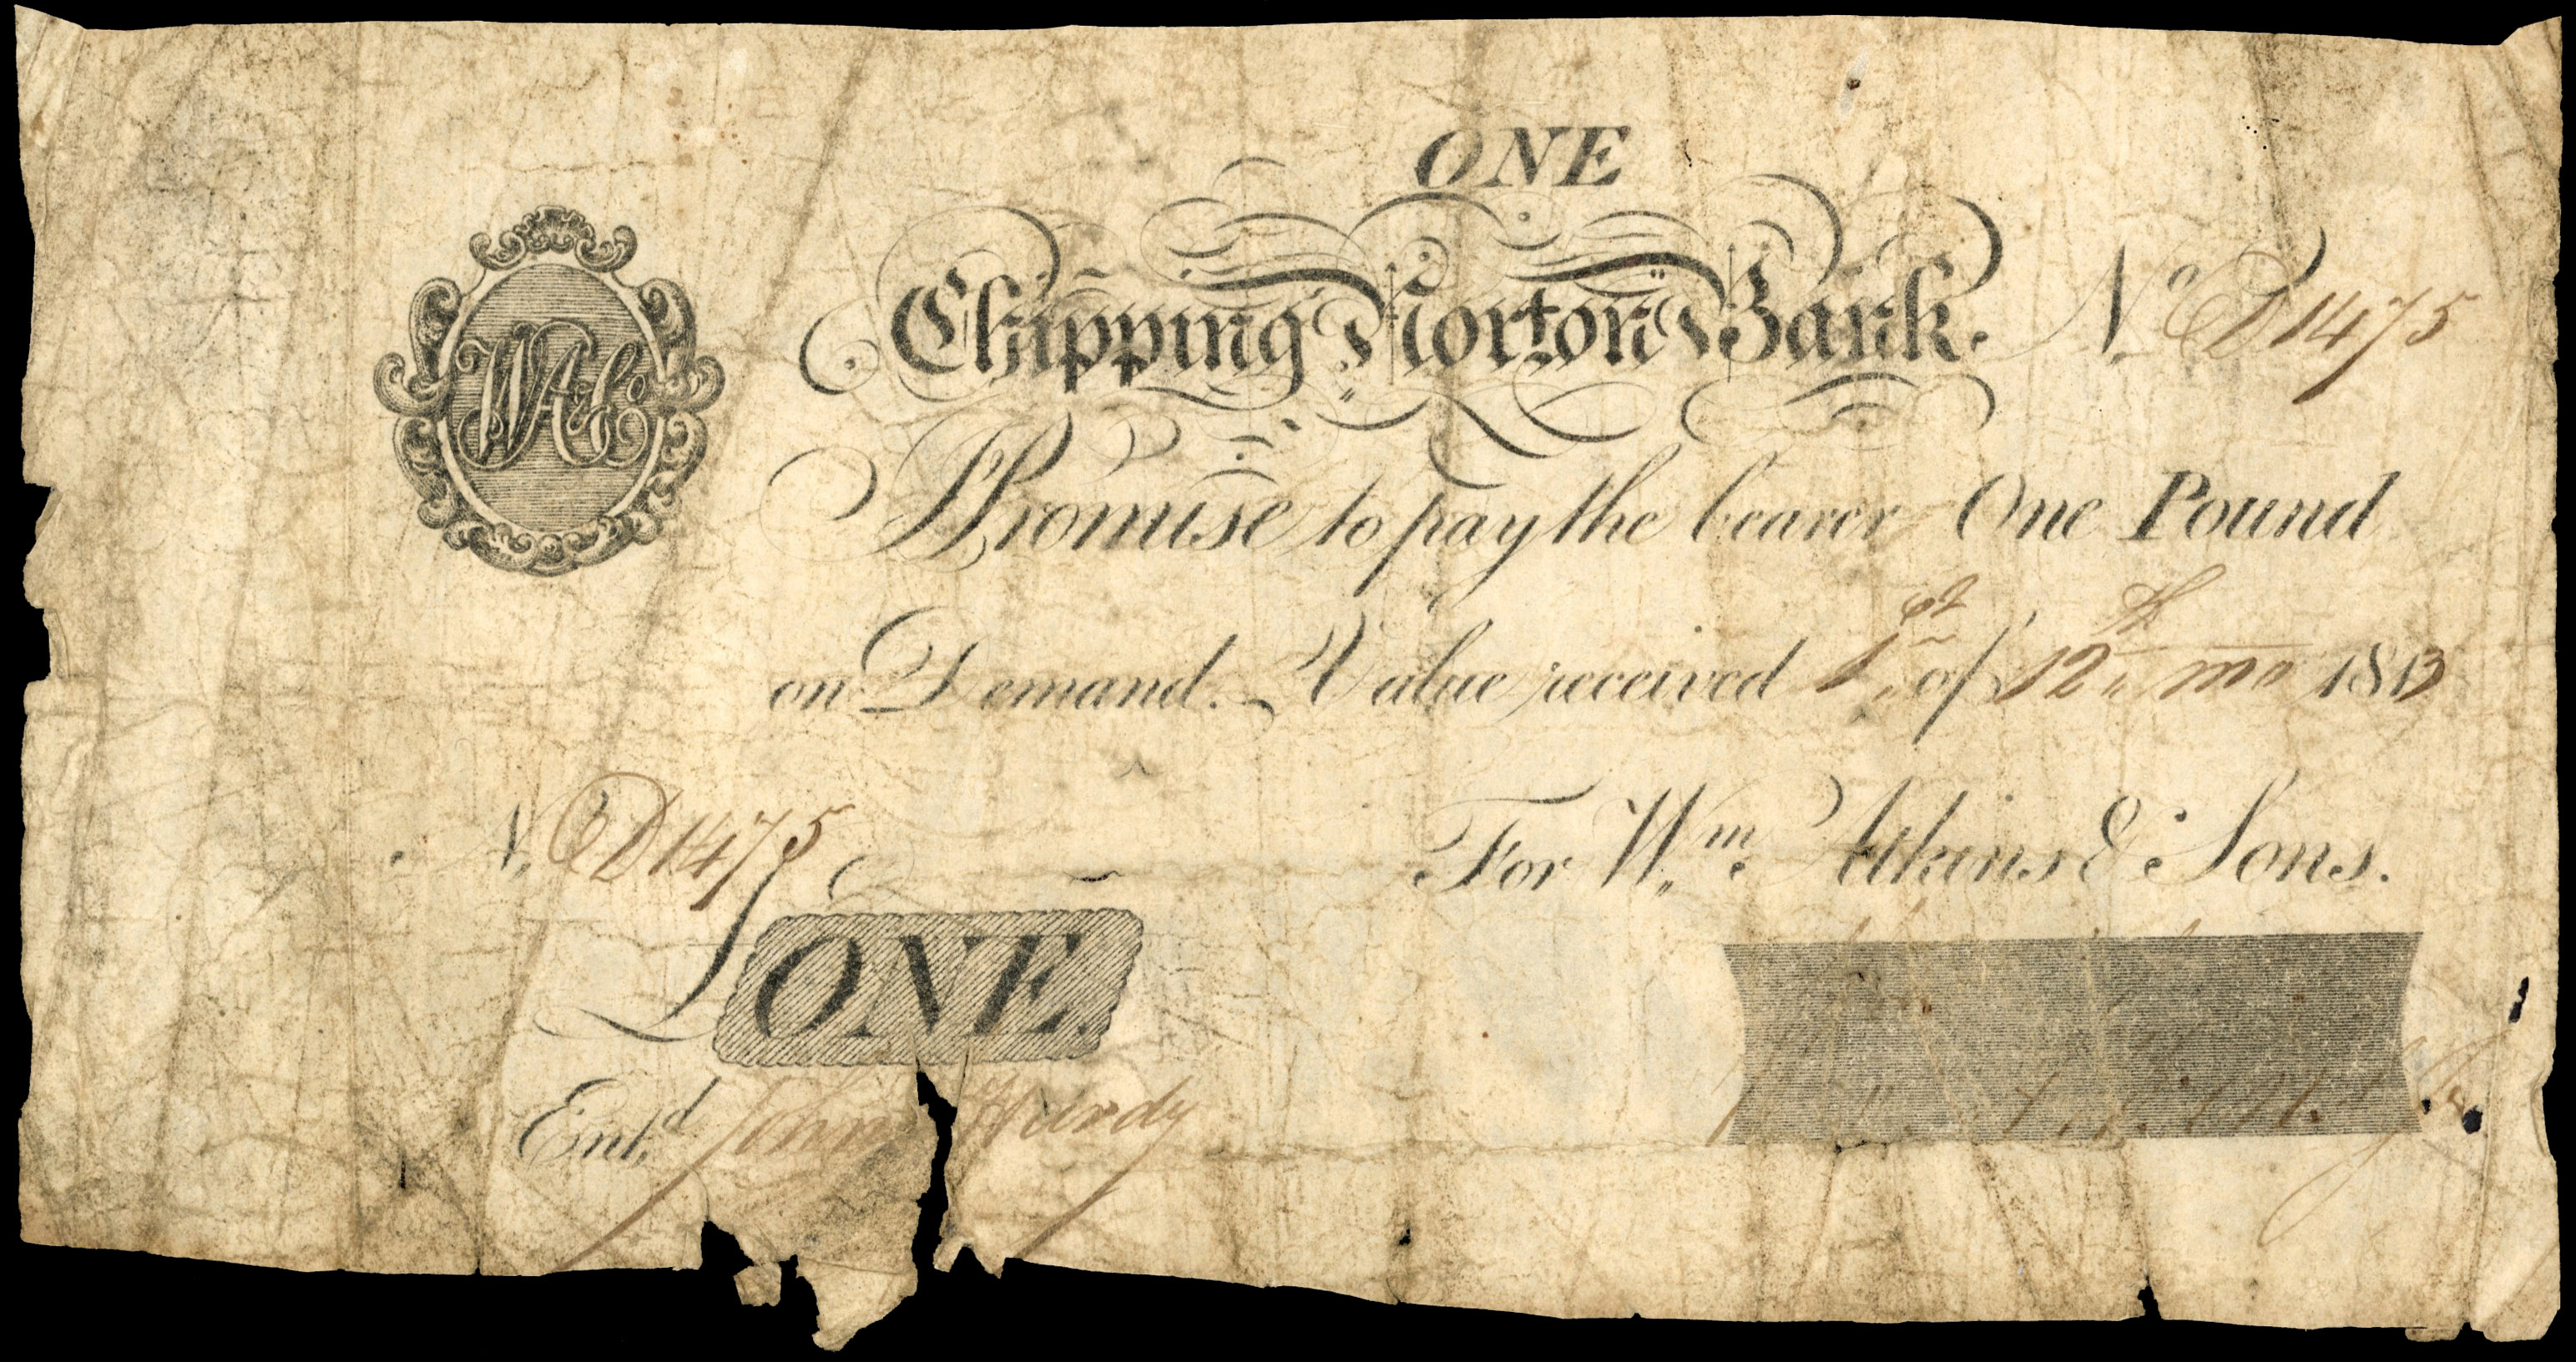 ONE
WA&Co
Chipping Norton Bank. No D1475
I Promise to pay the bearer One Pound
on Demand. Value received 1st of 12th mo 1813
No D1475
For Wm. Atkins & Sons.
ONE.
Entd. John Hurdy